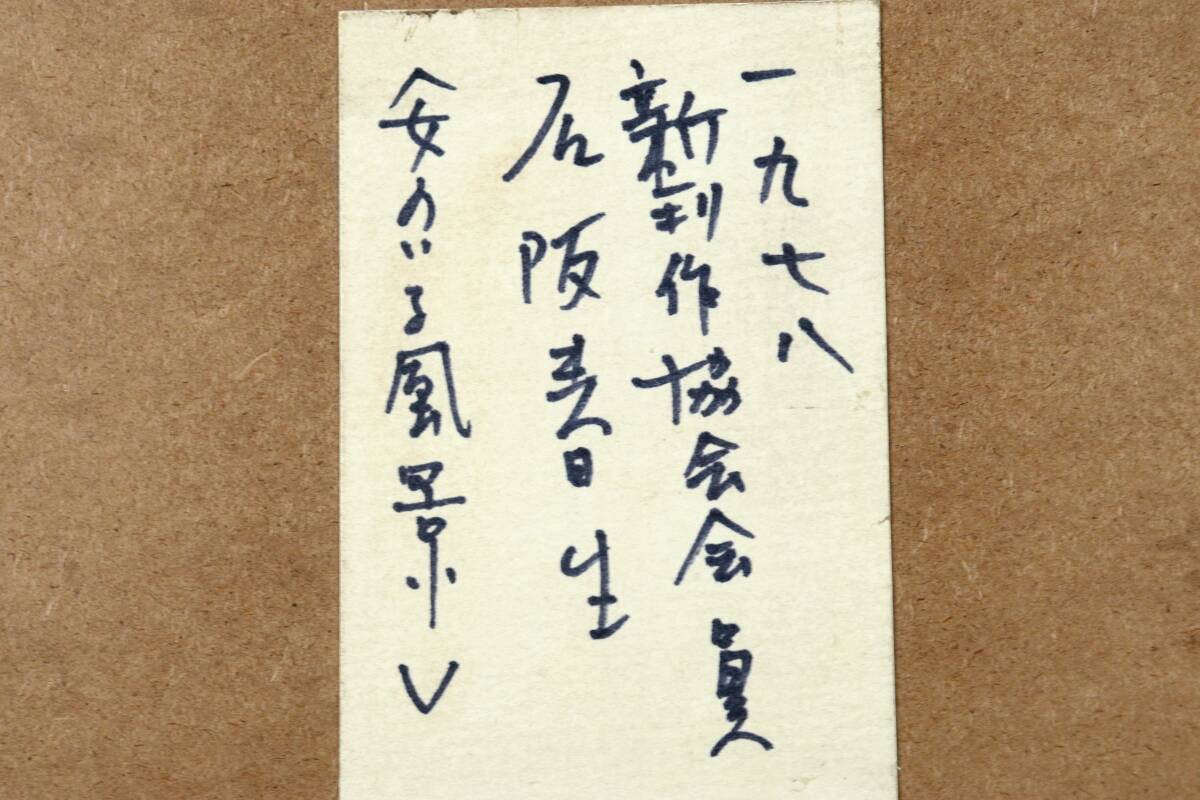 一九七八
新制作協会会員
石阪春生
〈女のいる風景〉